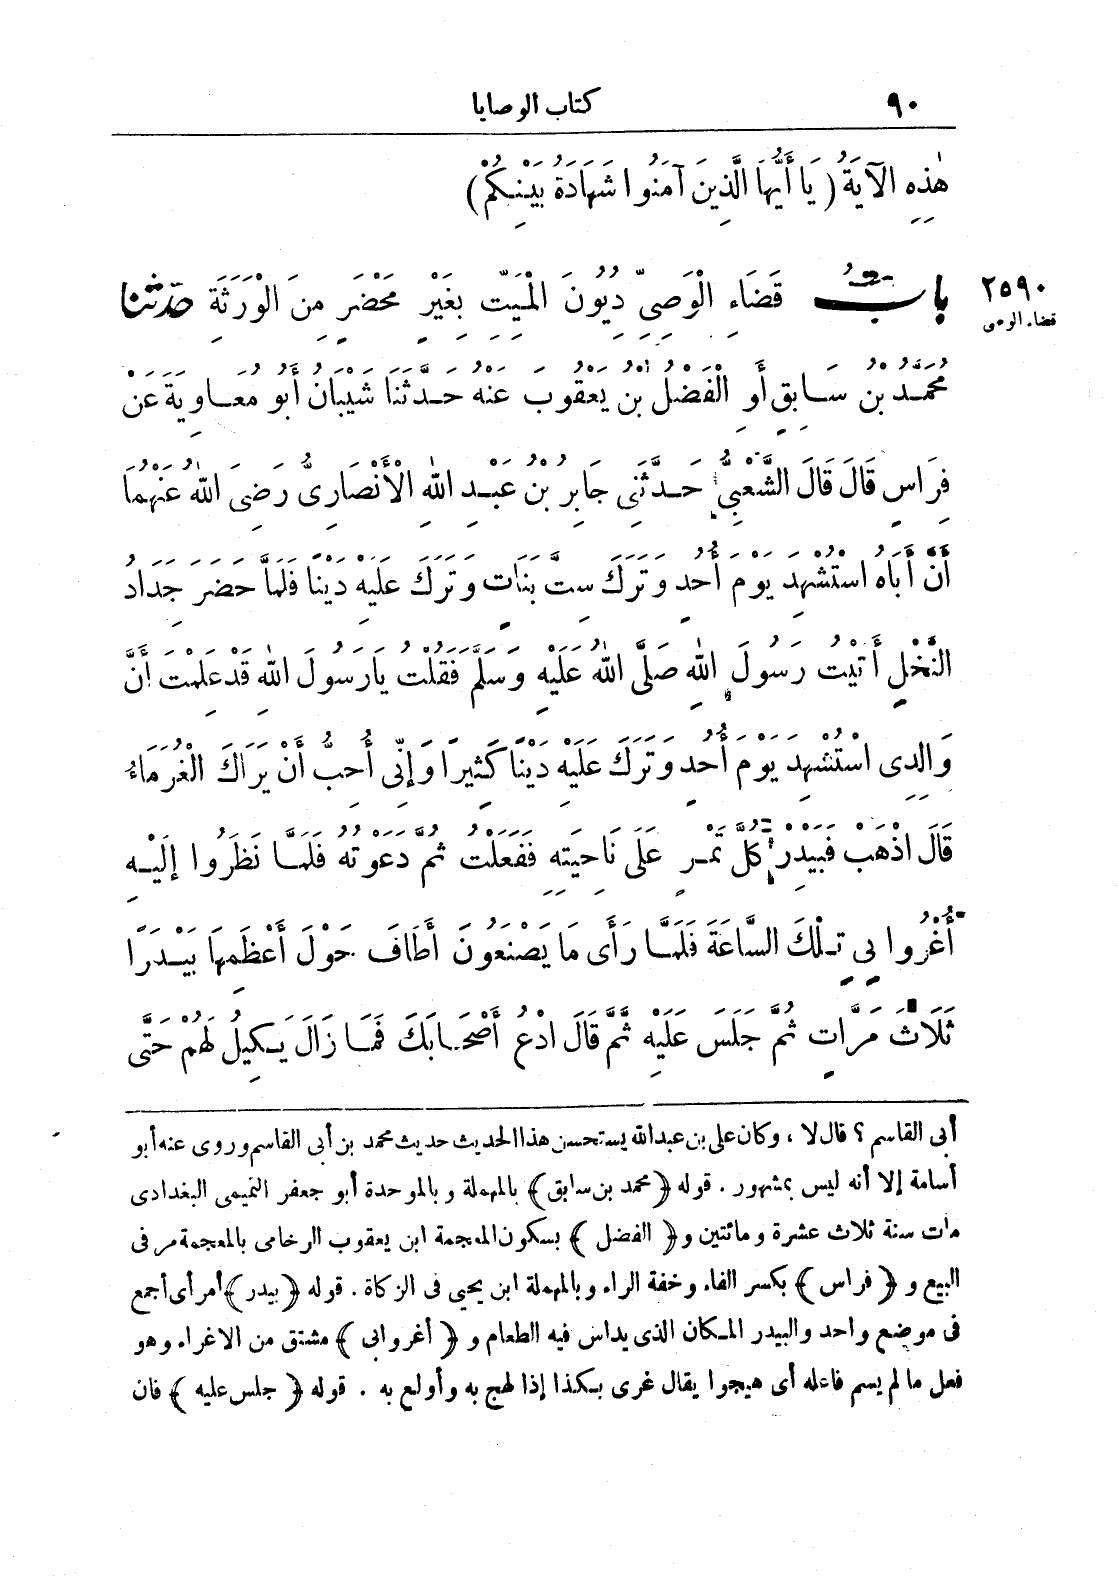 ٩٠
كتاب الوصايا
هٰذِهِ الْآيَةُ ( يَا أَيُّهَا الَّذِينَ آمَنُوا شَهَادَةُ بَيْنِكُمْ )
٢٥٩٠
قضاء الوصى
بَابُ قَضَاءِ الْوَصِيِّ دُيُونَ الْمَيِّتِ بِغَيْرِ مَحْضَرٍ مِنَ الْوَرَثَةِ حَدَّثَنَا
مُحَمَّدُ بْنُ سَابِقٍ أَوِ الْفَضْلُ بْنُ يَعْقُوبَ عَنْهُ حَدَّثَنَا شَيْبَانُ أَبُو مُعَاوِيَةَ عَنْ
فِرَاسٍ قَالَ قَالَ الشَّعْبِيُّ حَدَّثَنِي جَابِرُ بْنُ عَبْدِ اللهِ الْأَنْصَارِيُّ رَضِيَ اللهُ عَنْهُمَا
أَنَّ أَبَاهُ اسْتُشْهِدَ يَوْمَ أُحُدٍ وَتَرَكَ سِتَّ بَنَاتٍ وَتَرَكَ عَلَيْهِ دَيْنًا فَلَمَّا حَضَرَ جَدَادُ
النَّخْلِ أَتَيْتُ رَسُولَ اللهِ صَلَّى اللهُ عَلَيْهِ وَسَلَّمَ فَقُلْتُ يَا رَسُولَ اللهِ قَدْ عَلِمْتَ أَنَّ
وَالِدِي اسْتُشْهِدَ يَوْمَ أُحُدٍ وَتَرَكَ عَلَيْهِ دَيْنًا كَثِيرًا وَإِنِّي أُحِبُّ أَنْ يَرَاكَ الْغُرَمَاءُ
قَالَ اذْهَبْ فَبَيْدِرْ كُلَّ تَمْرٍ عَلَى نَاحِيَتِهِ فَفَعَلْتُ ثُمَّ دَعَوْتُهُ فَلَمَّا نَظَرُوا إِلَيْهِ
أُغْرُوا بِي تِلْكَ السَّاعَةَ فَلَمَّا رَأَى مَا يَصْنَعُونَ أَطَافَ حَوْلَ أَعْظَمِهَا بَيْدَرًا
ثَلَاثَ مَرَّاتٍ ثُمَّ جَلَسَ عَلَيْهِ ثُمَّ قَالَ ادْعُ أَصْحَابَكَ فَمَا زَالَ يَكِيلُ لَهُمْ حَتَّى
أبى القاسم ؟ قال لا ، وكان على بن عبدالله يستحسن هذا الحديث حديث محمد بن أبى القاسم وروى عنه أبو
أسامة إلا أنه ليس بمشهور . قوله ﴿ محمد بن سابق ﴾ بالمهملة وبالموحدة أبو جعفر التميمى البغدادى
مات سنة ثلاث عشرة ومائتين و ﴿ الفضل ﴾ بسكون المعجمة ابن يعقوب الرخامى بالمعجمة مر فى
البيع و ﴿ فراس ﴾ بكسر الفاء وخفة الراء وبالمهملة ابن يحيى فى الزكاة . قوله ﴿ بيدر ﴾ أمر أى أجمع
فى موضع واحد والبيدر المكان الذى يداس فيه الطعام و ﴿ أغروا بى ﴾ مشتق من الاغراء وهو
فعل ما لم يسم فاعله أى هيجوا يقال غرى بكذا إذا لهج به وأولع به . قوله ﴿ جلس عليه ﴾ فان